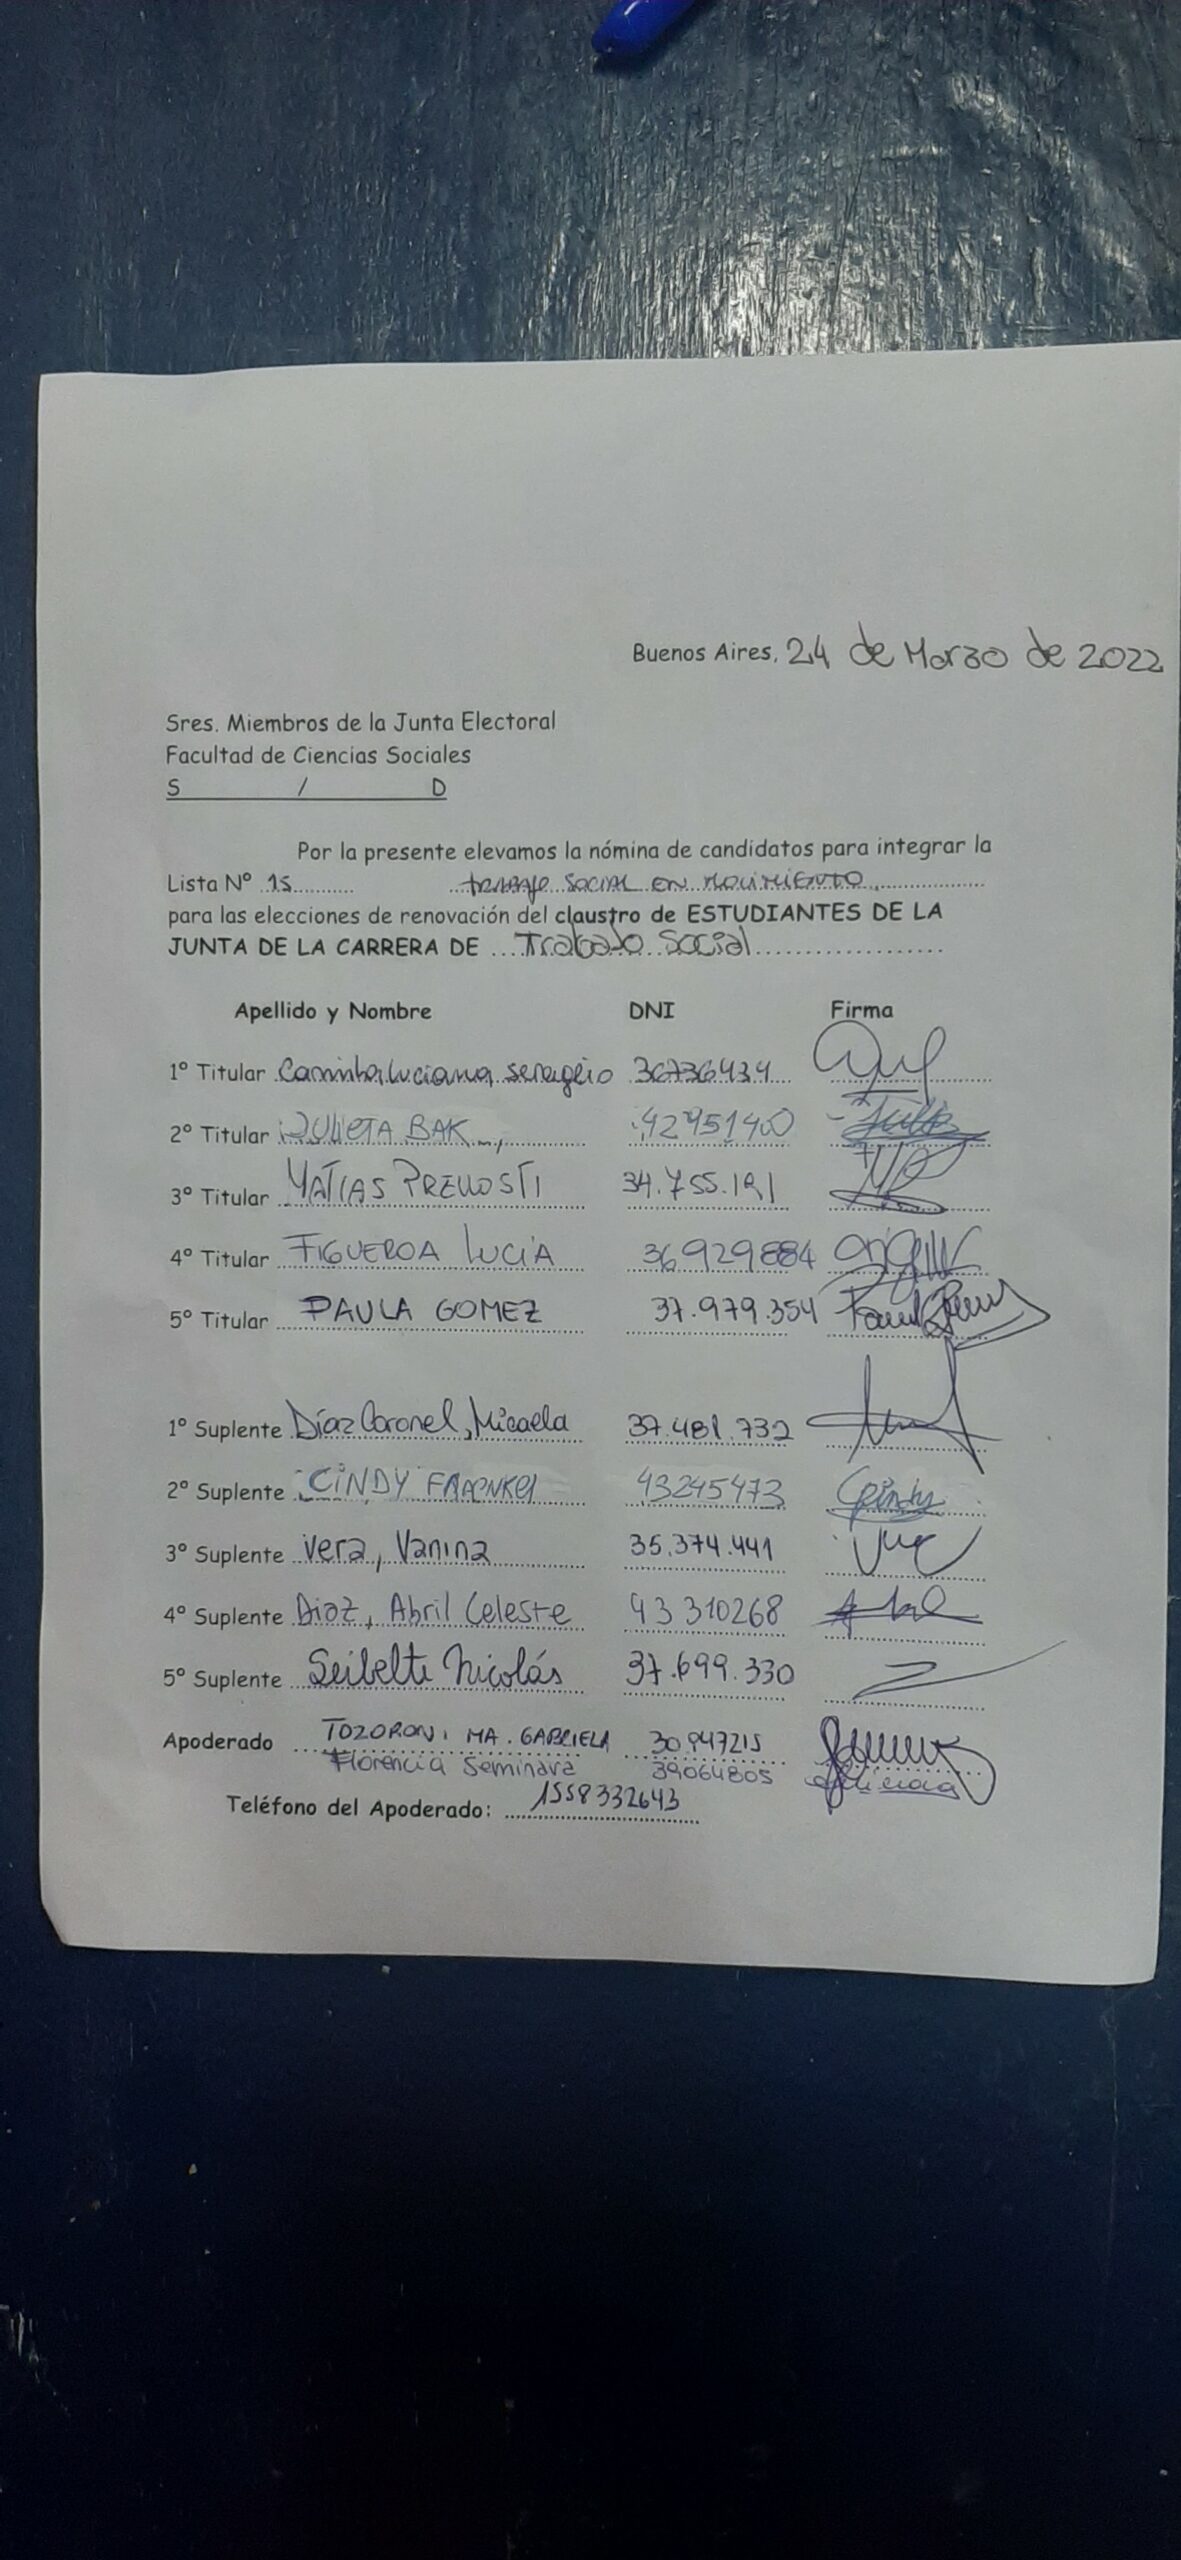 Buenos Aires, 24 de Marzo de 2022
Sres. Miembros de la Junta Electoral
Facultad de Ciencias Sociales
S / D
Por la presente elevamos la nómina de candidatos para integrar la
Lista Nº 15 TRABAJO SOCIAL EN MOVIMIENTO
para las elecciones de renovación del claustro de ESTUDIANTES DE LA
JUNTA DE LA CARRERA DE Trabajo Social
Apellido y Nombre DNI Firma
1º Titular Luciana 36736434
2º Titular JULIETA BAK 42951400
3º Titular MATIAS PREVOSTI 34.755.191
4º Titular FIGUEROA LUCIA 36929884
5º Titular PAULA GOMEZ 37.979.354
1º Suplente Díaz Coronel, Micaela 37.481.732
2º Suplente CINDY 43245473 Cindy
3º Suplente Vera, Vanina 35.374.441
4º Suplente Diaz, Abril Celeste 43310268
5º Suplente Seibelt Nicolás 37.699.330
Apoderado TOZORONI MA. GABRIELA 30947215
Florencia Seminara 39064805
Teléfono del Apoderado: 1558332643